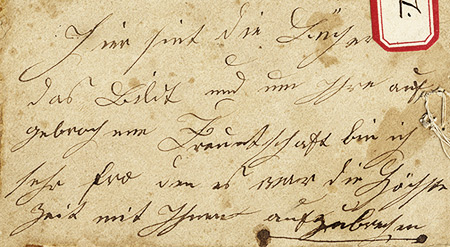 Hier sint die Bücher
das Bildt und um Ihre auf
gebrochene Freuntschaft bin ich
sehr fro den es war die Höchste
Zeit mit Ihnen aufzubrechen